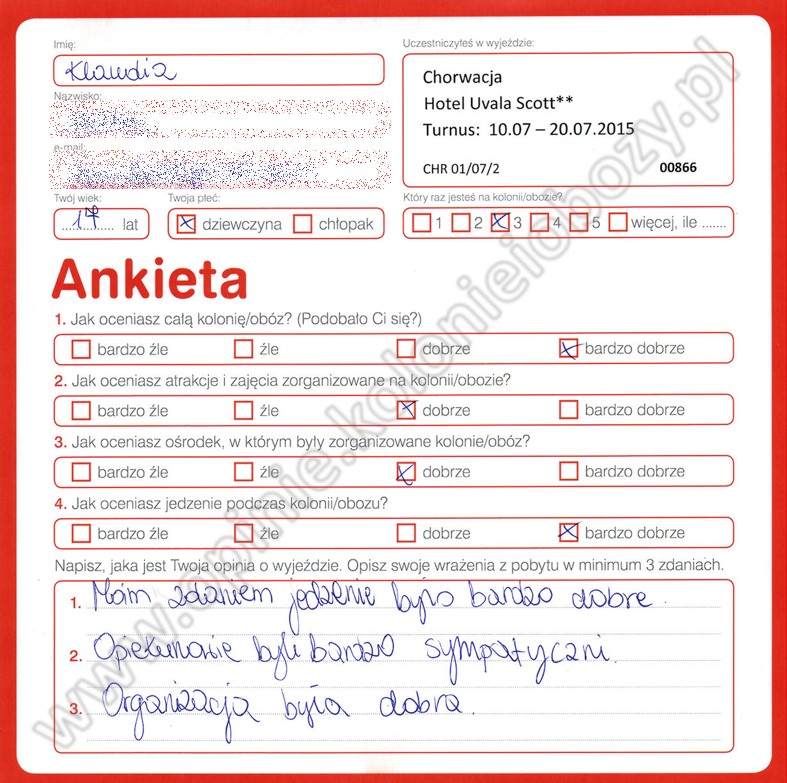 Imię:
Klaudia
Uczestniczyłeś w wyjeździe:
Chorwacja
Hotel Uvala Scott**
Turnus: 10.07 – 20.07.2015
CHR 01/07/2 00866
Nazwisko:
e-mail:
Twój wiek:
17 lat
Twoja płeć:
dziewczyna chłopak
Który raz jesteś na kolonii/obozie?
1 2 3 4 5 więcej, ile .......
Ankieta
1. Jak oceniasz całą kolonię/obóz? (Podobało Ci się?)
bardzo źle źle dobrze bardzo dobrze
2. Jak oceniasz atrakcje i zajęcia zorganizowane na kolonii/obozie?
bardzo źle źle dobrze bardzo dobrze
3. Jak oceniasz ośrodek, w którym były zorganizowane kolonie/obóz?
bardzo źle źle dobrze bardzo dobrze
4. Jak oceniasz jedzenie podczas kolonii/obozu?
bardzo źle źle dobrze bardzo dobrze
Napisz, jaka jest Twoja opinia o wyjeździe. Opisz swoje wrażenia z pobytu w minimum 3 zdaniach.
1. Moim zdaniem jedzenie było bardzo dobre.
2. Opiekunowie byli bardzo sympatyczni.
3. Organizacja była dobra.
www.opinie.kolonieiobozy.pl